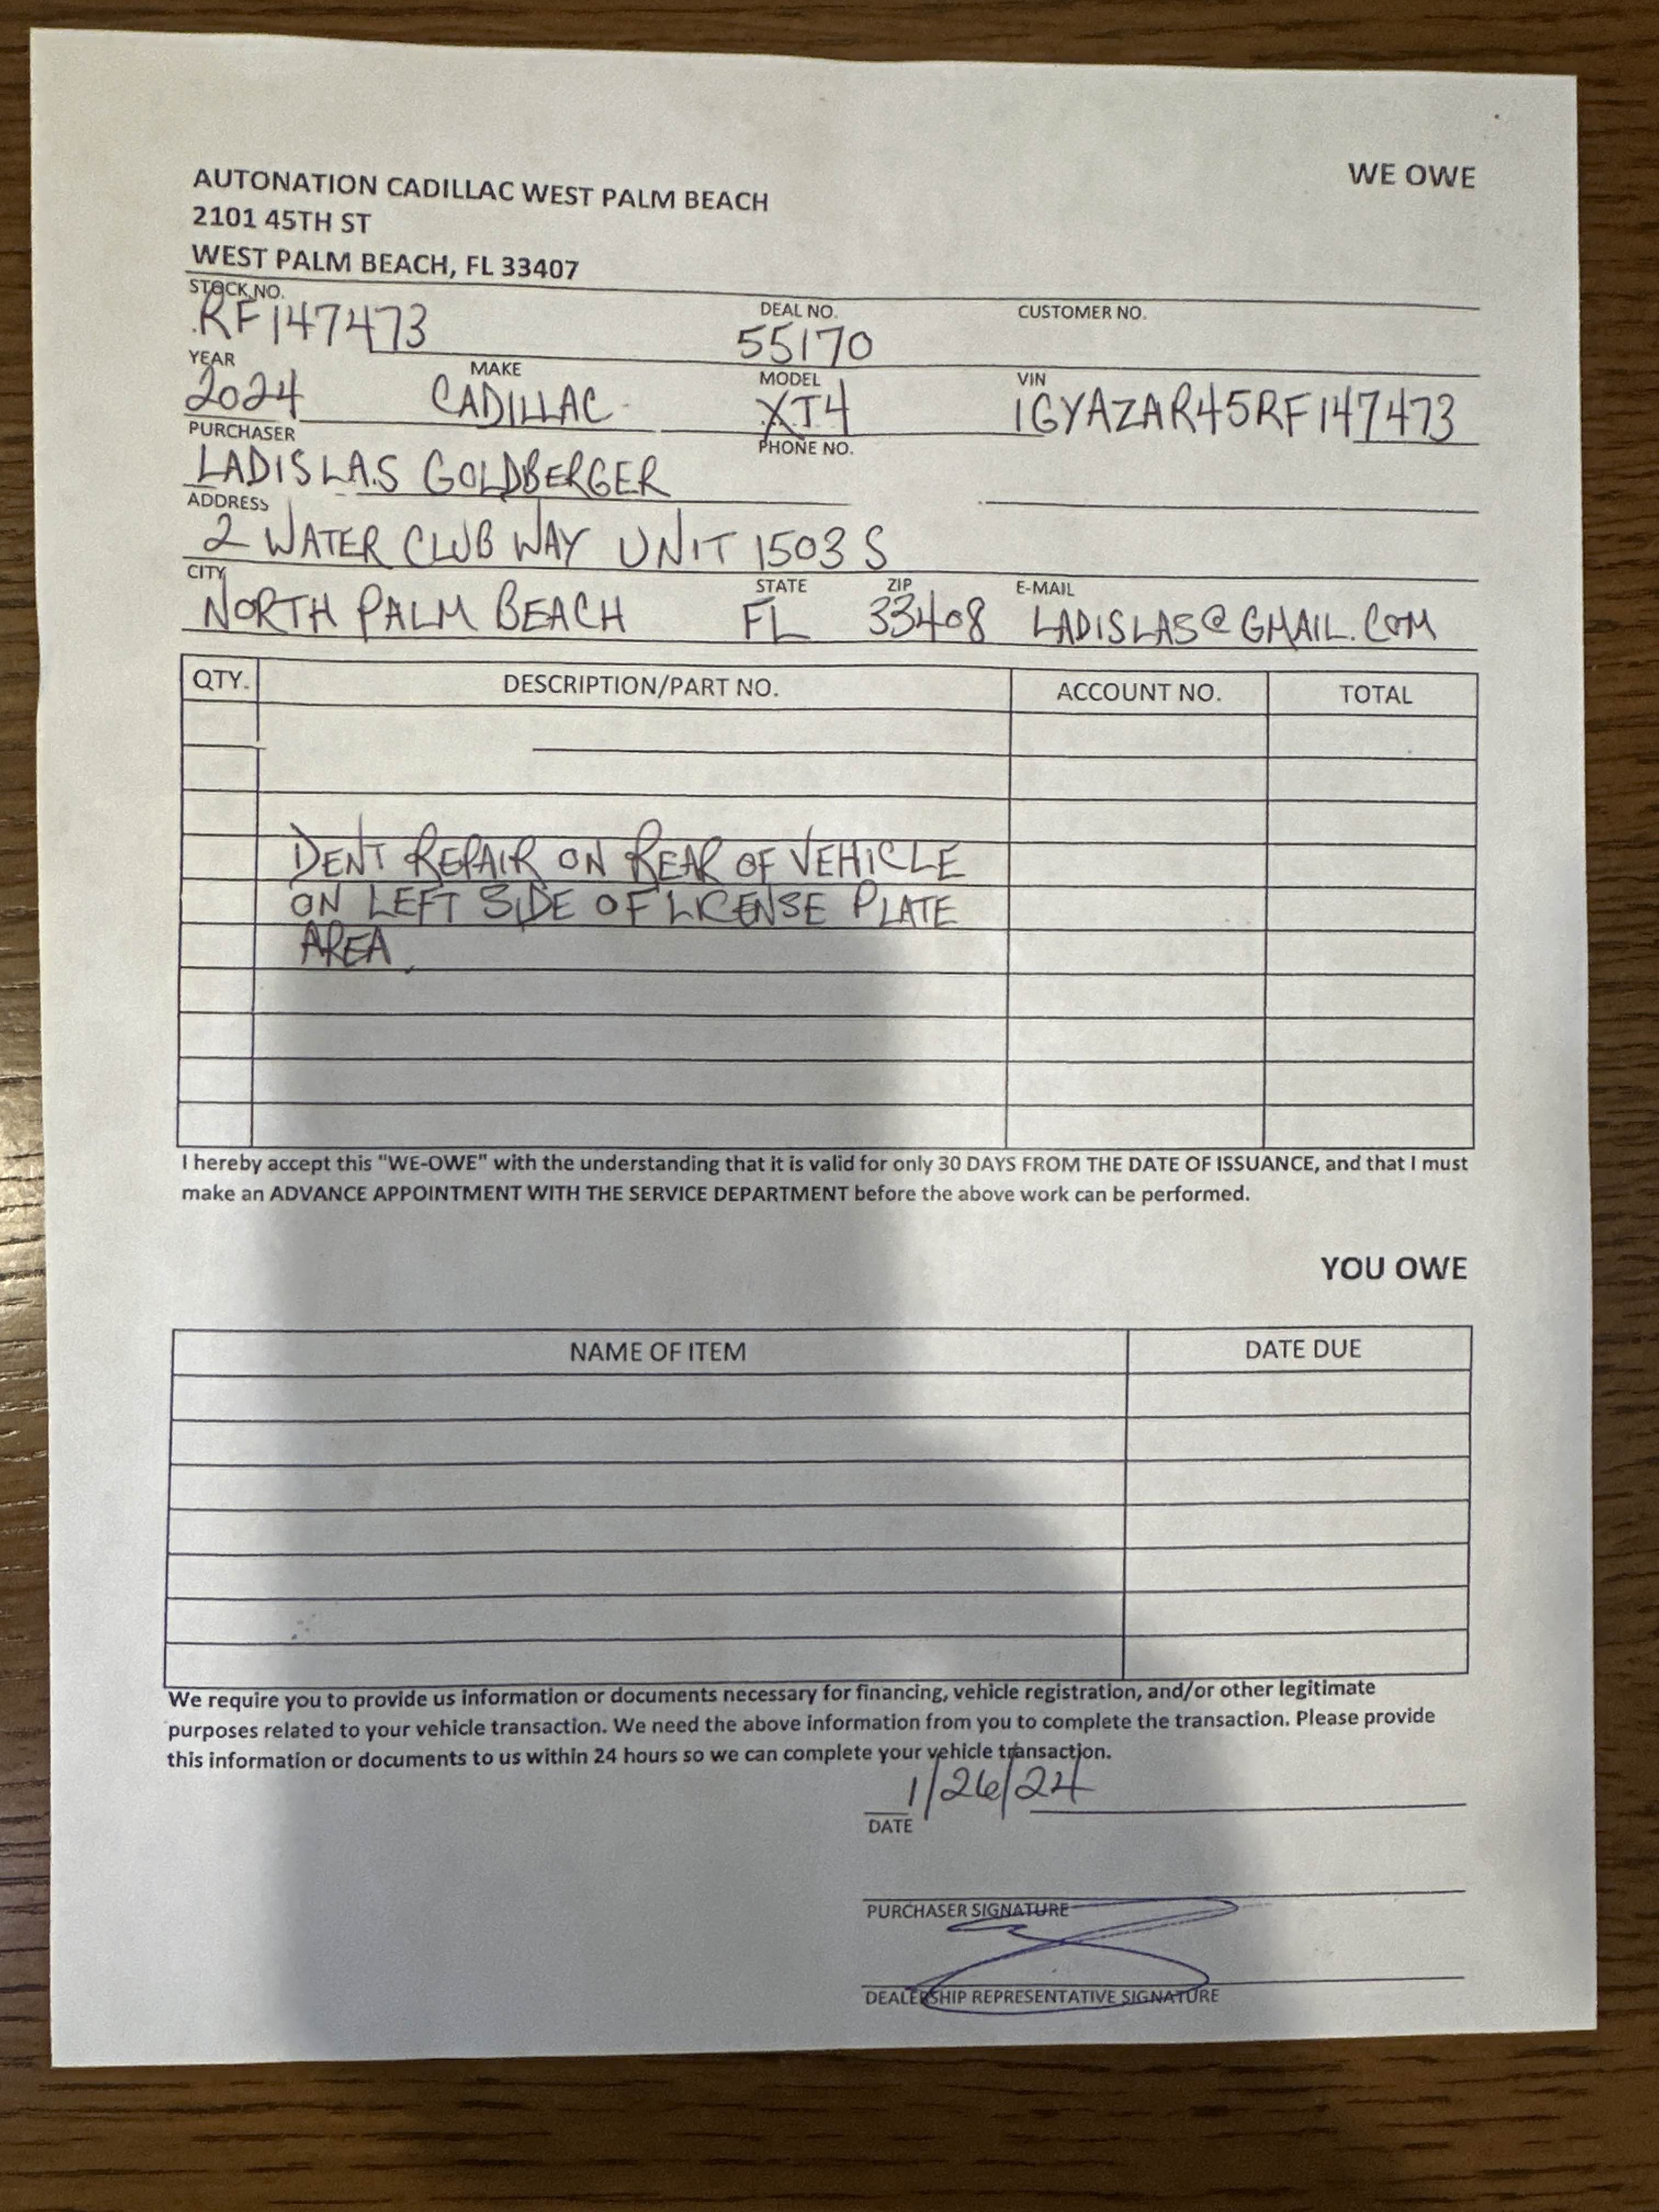 WE OWE
AUTONATION CADILLAC WEST PALM BEACH
2101 45TH ST
WEST PALM BEACH, FL 33407
STOCK NO. DEAL NO. CUSTOMER NO.
RF147473 55170
YEAR MAKE MODEL VIN
2024 CADILLAC XT4 1GYAZAR45RF147473
PURCHASER PHONE NO.
LADISLAS GOLDBERGER
ADDRESS
2 WATER CLUB WAY UNIT 1503 S
CITY STATE ZIP E-MAIL
NORTH PALM BEACH FL 33408 LADISLAS@GMAIL.COM
QTY. DESCRIPTION/PART NO. ACCOUNT NO. TOTAL
DENT REPAIR ON REAR OF VEHICLE
ON LEFT SIDE OF LICENSE PLATE
AREA
I hereby accept this "WE-OWE" with the understanding that it is valid for only 30 DAYS FROM THE DATE OF ISSUANCE, and that I must
make an ADVANCE APPOINTMENT WITH THE SERVICE DEPARTMENT before the above work can be performed.
YOU OWE
NAME OF ITEM DATE DUE
We require you to provide us information or documents necessary for financing, vehicle registration, and/or other legitimate
purposes related to your vehicle transaction. We need the above information from you to complete the transaction. Please provide
this information or documents to us within 24 hours so we can complete your vehicle transaction.
1/26/24
DATE
PURCHASER SIGNATURE
DEALERSHIP REPRESENTATIVE SIGNATURE